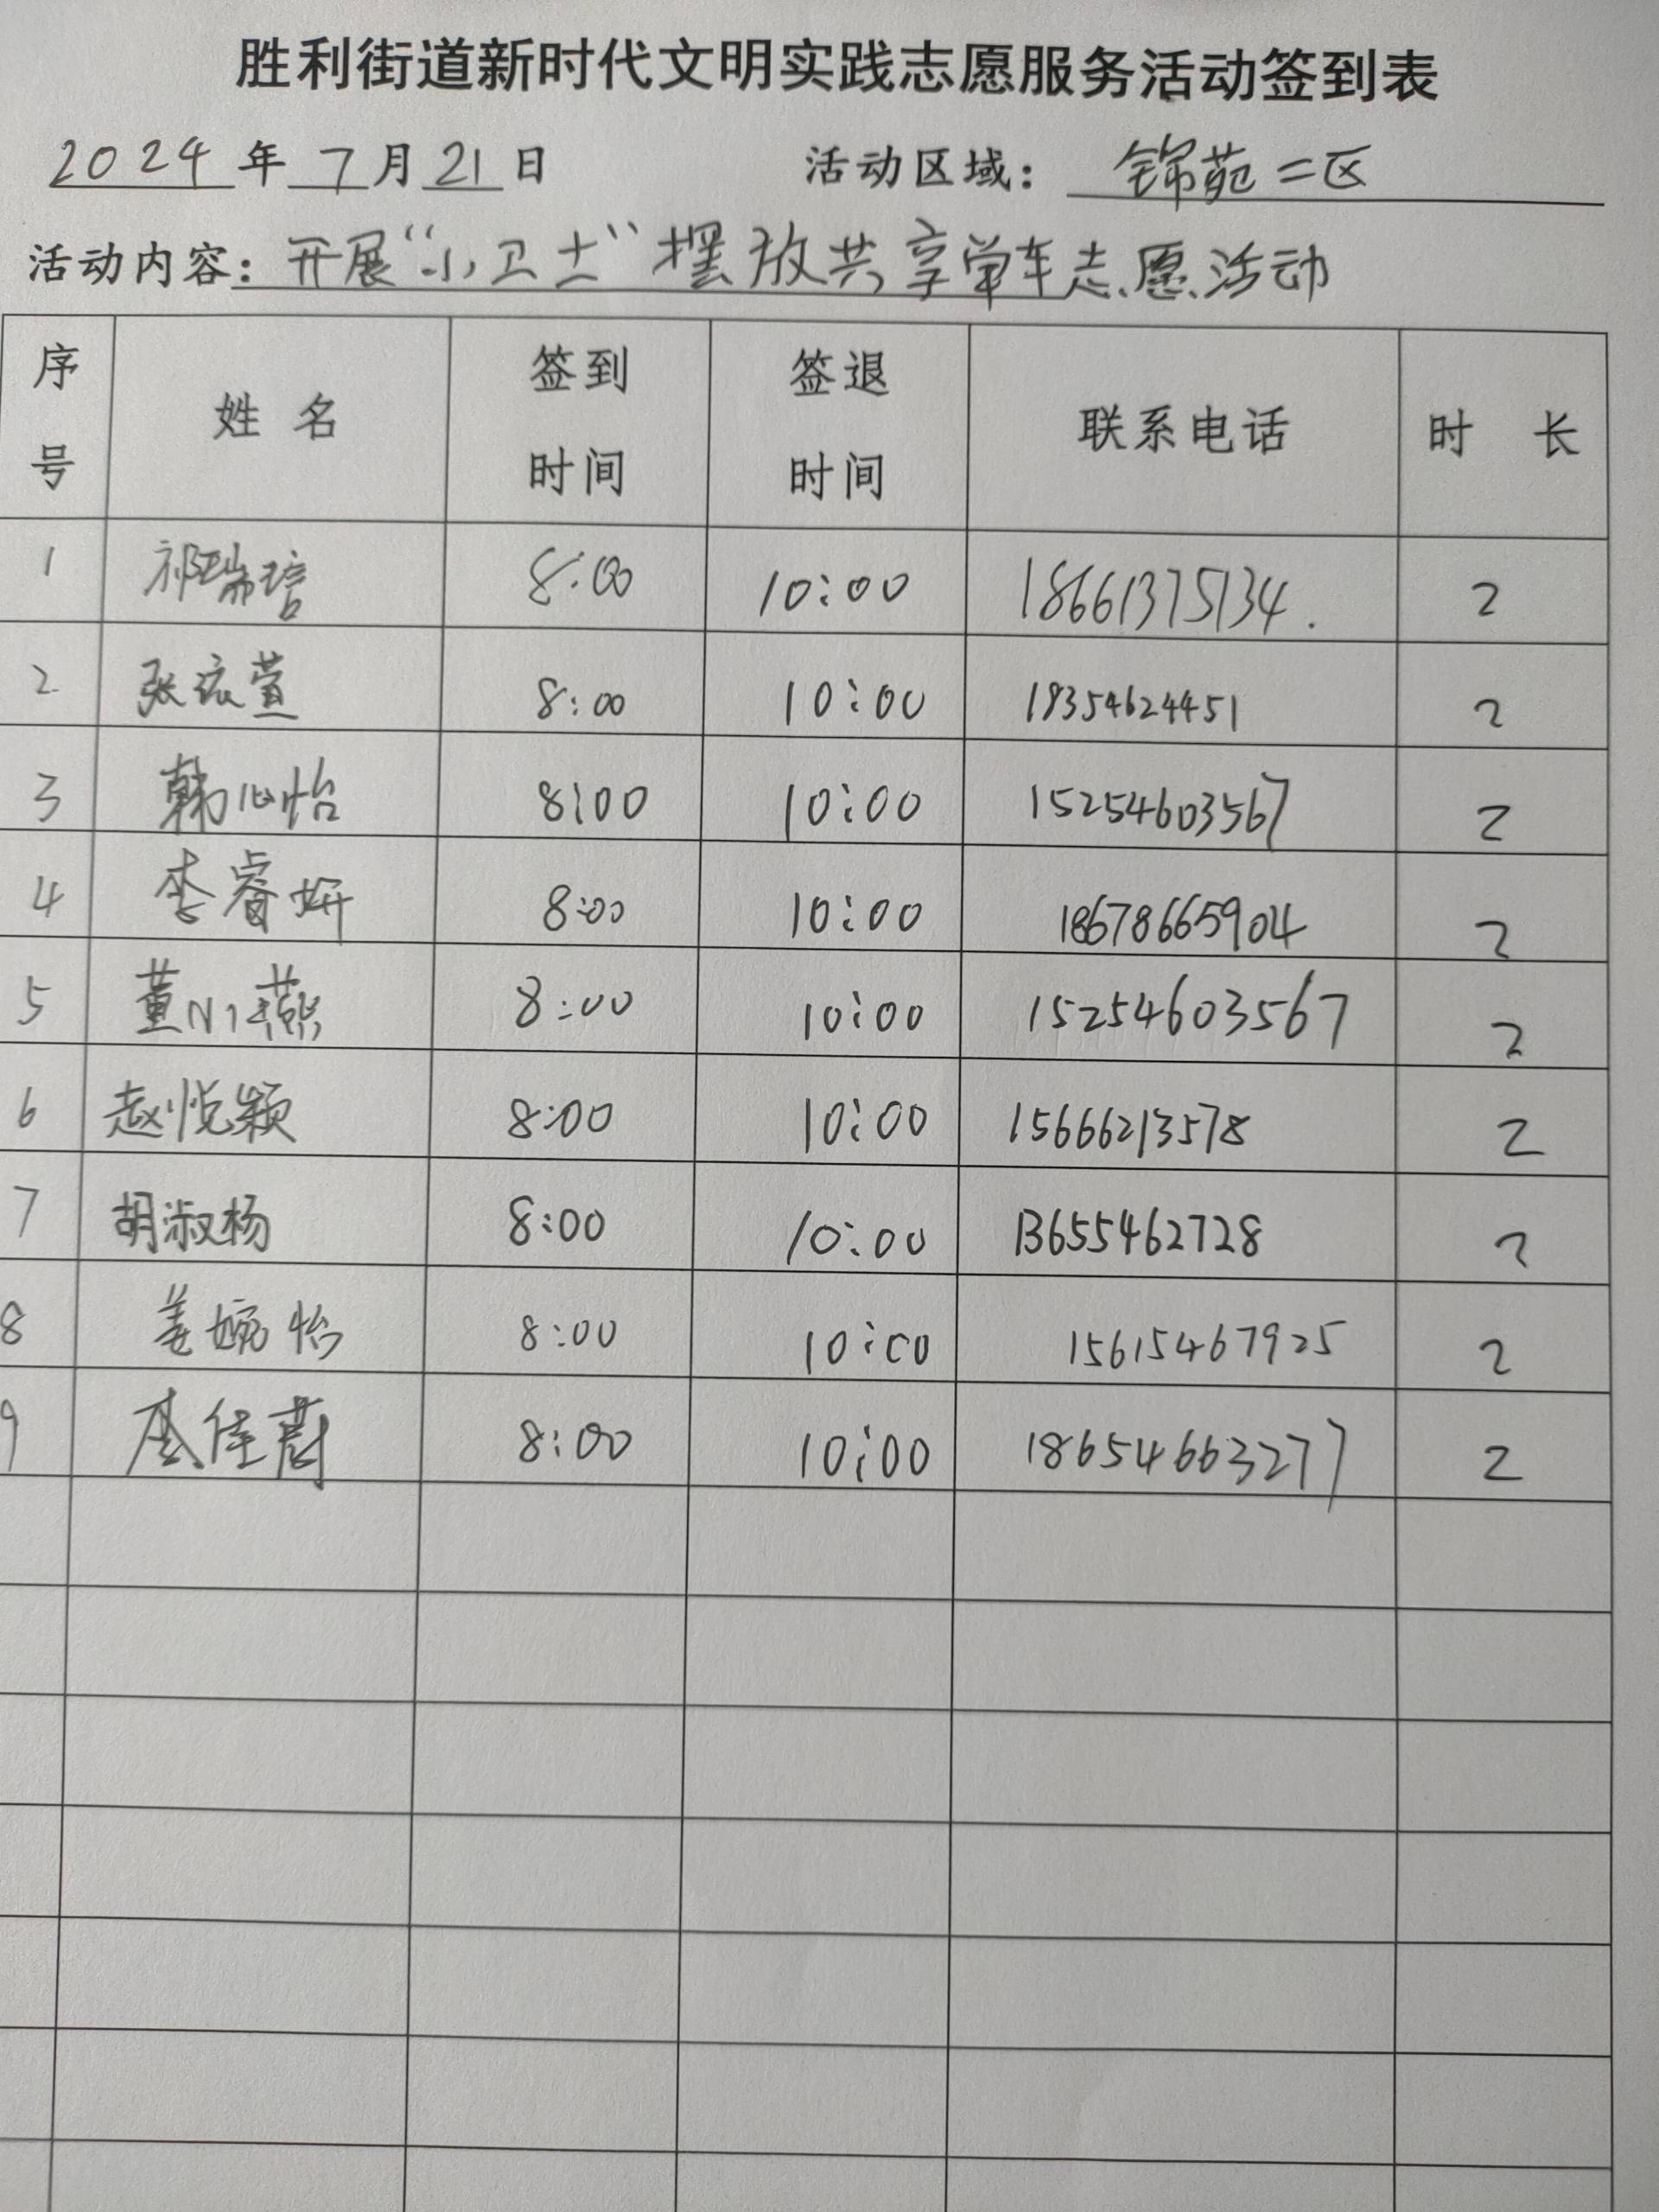 胜利街道新时代文明实践志愿服务活动签到表
2024年7月21日 活动区域：锦苑二区
活动内容：开展“小卫士”摆放共享单车志愿活动
序号 姓名 签到时间 签退时间 联系电话 时长
1 祁瑞培 8:00 10:00 18661375134. 2
2 张宸萱 8:00 10:00 18354624451 2
3 韩心怡 8:00 10:00 15254603567 2
4 李睿妍 8:00 10:00 18678665904 2
5 董小燕 8:00 10:00 15254603567 2
6 赵悦颖 8:00 10:00 15666213578 2
7 胡淑杨 8:00 10:00 13655462728 2
8 姜婉怡 8:00 10:00 15615467925 2
9 佳蔚 8:00 10:00 18654663277 2